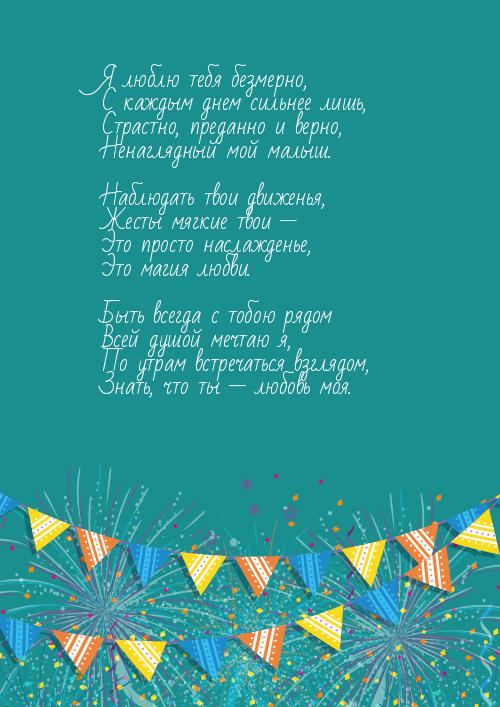 Я люблю тебя безмерно,
С каждым днем сильнее лишь,
Страстно, преданно и верно,
Ненаглядный мой малыш.
Наблюдать твои движенья,
Жесты мягкие твои —
Это просто наслажденье,
Это магия любви.
Быть всегда с тобою рядом
Всей душой мечтаю я,
По утрам встречаться взглядом,
Знать, что ты — любовь моя.